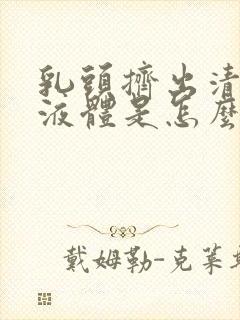 乳頭擠出清
液體是怎麼
戴姆勒-克萊